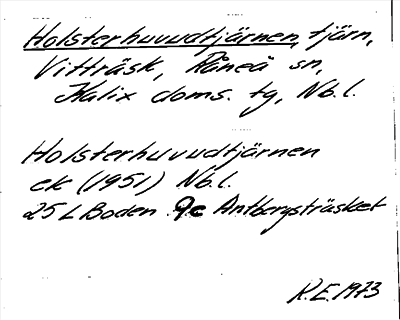 Holsterhuvudtjärnen, tjärn,
Vitträsk, Råneå sn,
Kalix doms. tg, Nb.l.
Holsterhuvudtjärnen
ek (1951) Nb.l.
25 L Boden 9c Antbergsträsket
R.E. 1973